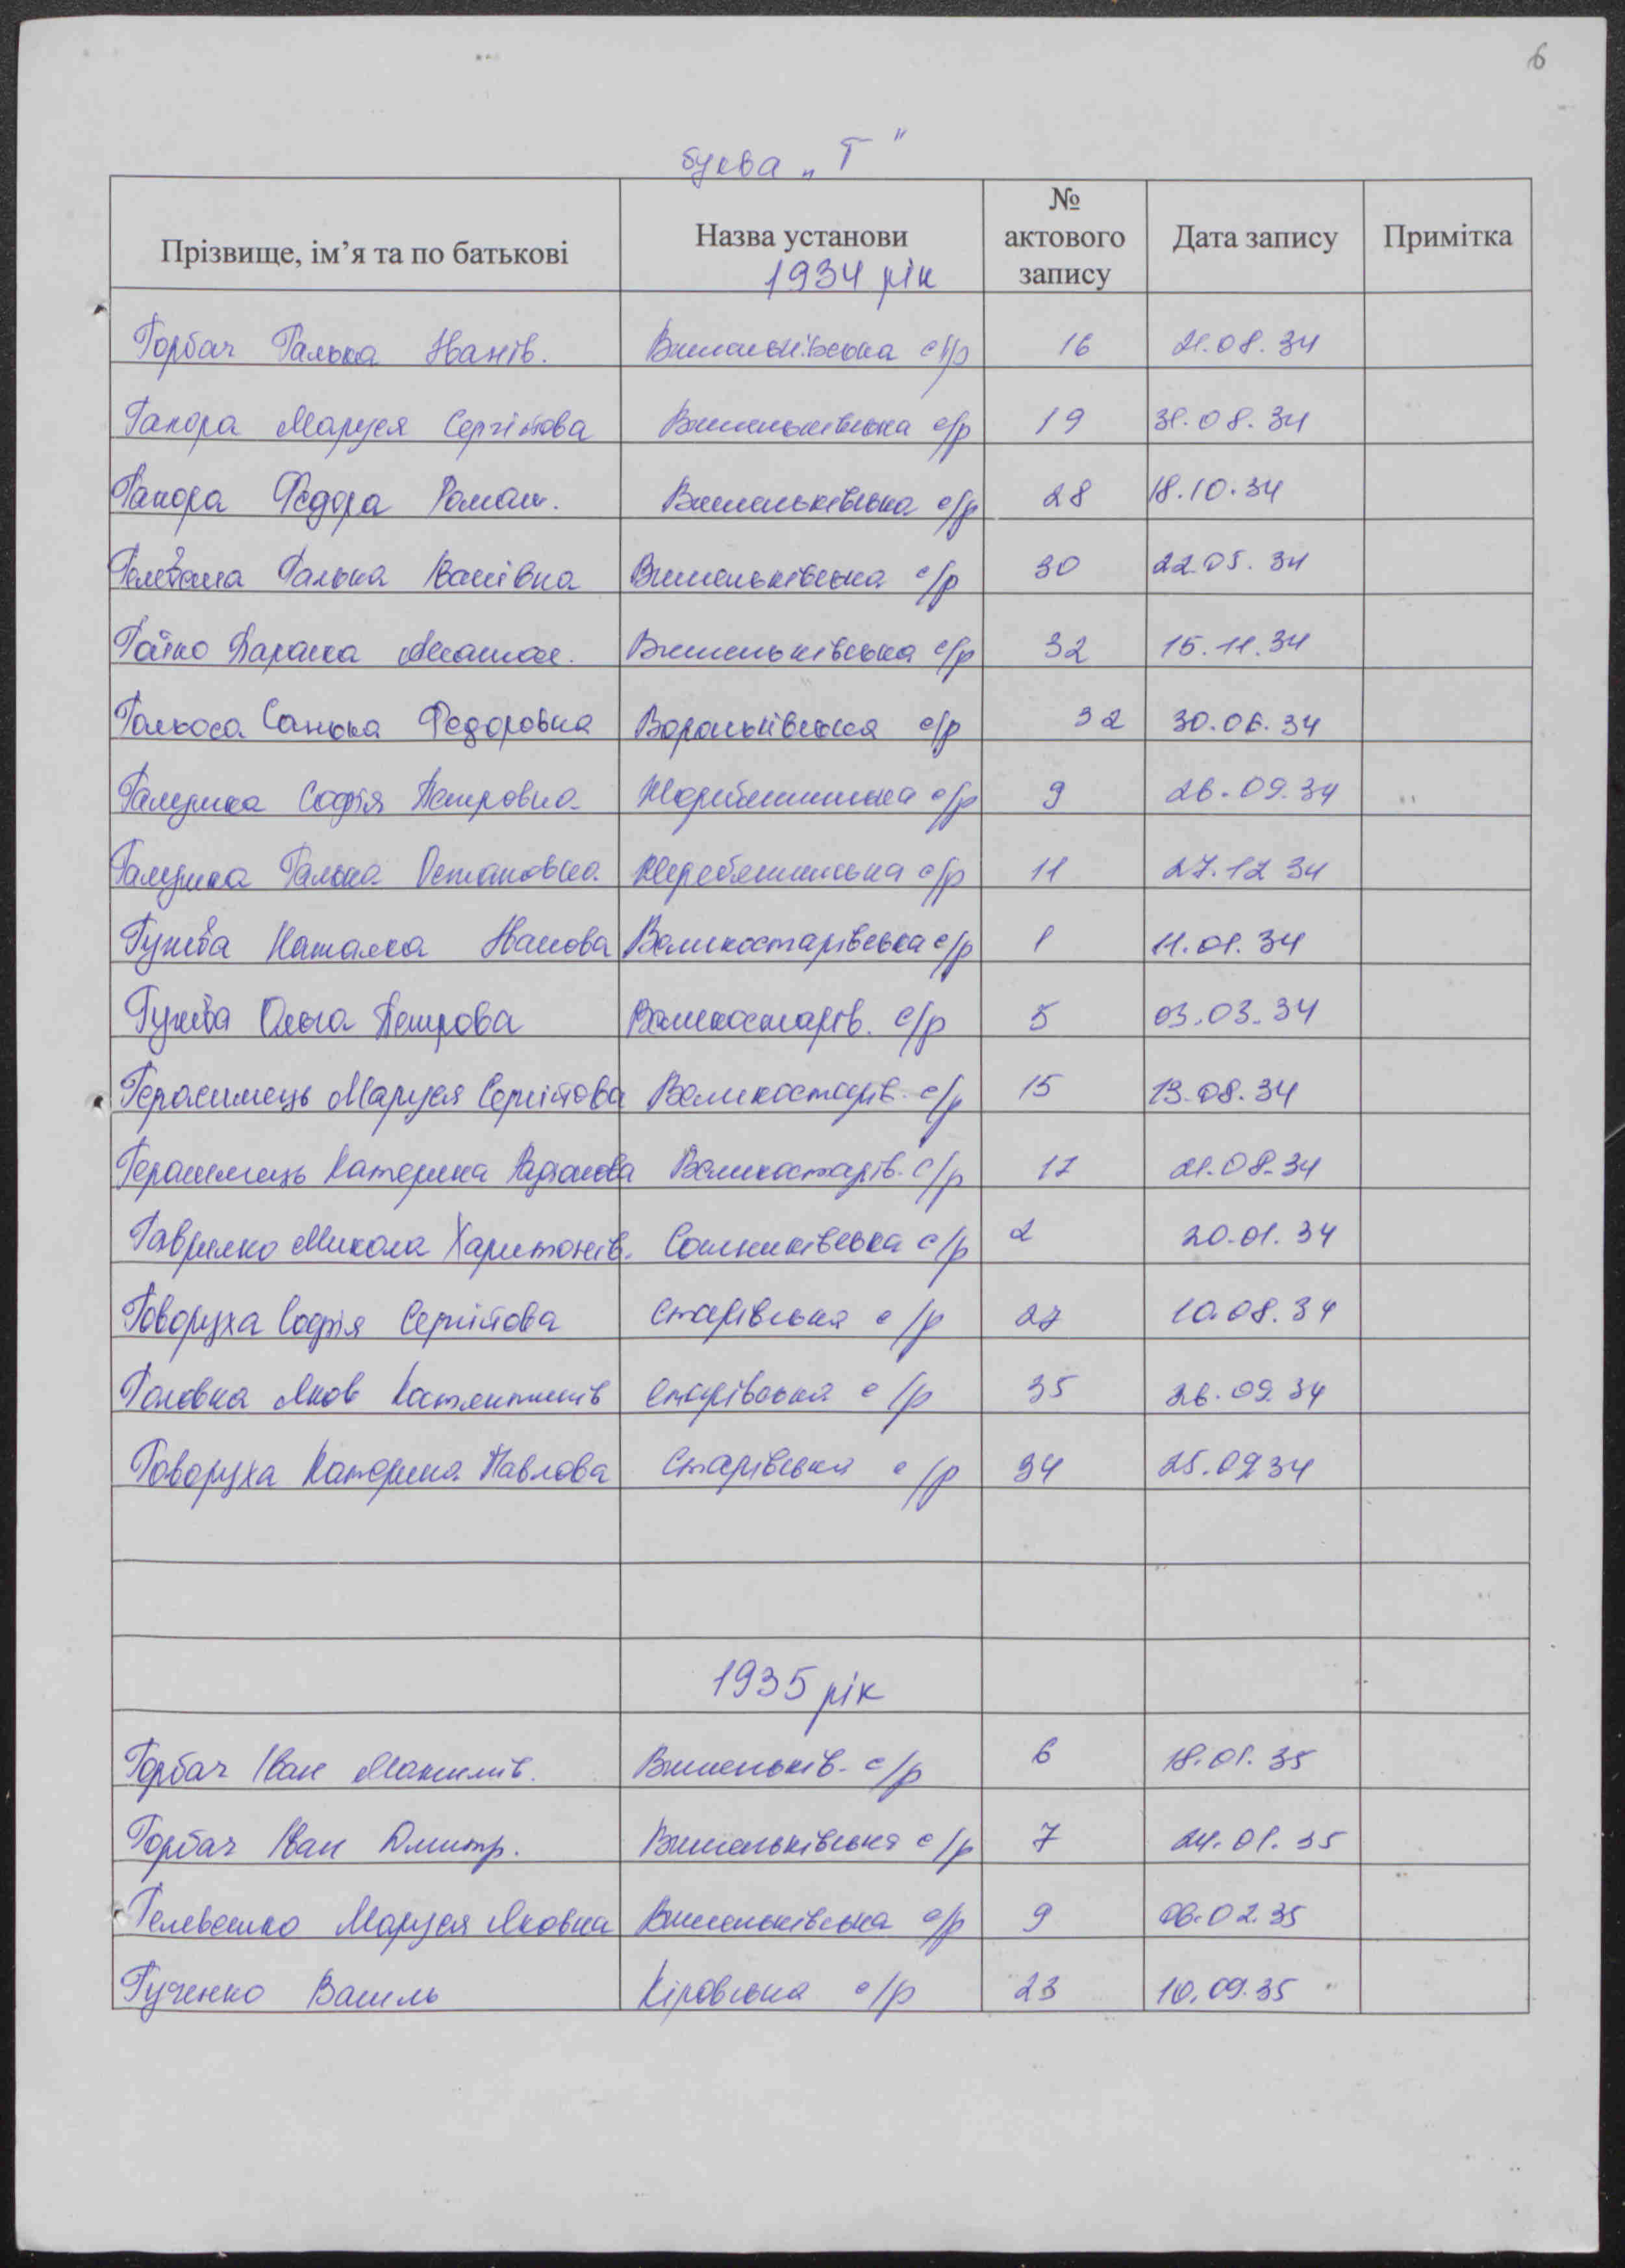 6
буква „Г"
Прізвище, ім'я та по батькові | Назва установи 1934 рік | № актового запису | Дата запису | Примітка
Горбач Галька Іванів. | Вишеньківська с/р | 16 | 21.08.34
Гапора Маруся Сергіїова | Вишеньківська с/р | 19 | 31.08.34
Гапора Федора Роман. | Вишеньківська с/р | 28 | 18.10.34
Галька Іванівна | Вишеньківська с/р | 30 | 22.05.34
Гайко Параска | Вишеньківська с/р | 32 | 15.11.34
Санька Федоровна | Вороньківська с/р | 32 | 30.06.34
Галушка Софія Петровна | с/р | 9 | 26.09.34
Галушка Галька Остаповна | Жеребятинська с/р | 11 | 27.12 34
Гужва Наталка Іванова | Великостарівська с/р | 1 | 11.01.34
Гужва Ольга Петрова | Великостарів. с/р | 5 | 03.03.34
Герасимець Маруся Сергійова | Великостарів. с/р | 15 | 13.08.34
Герасимець Катерина | Великостарів. с/р | 17 | 21.08.34
Гаврилко Микола Харитонів. | Сошниківська с/р | 2 | 20.01.34
Говоруха Софія Сергійова | Старівська с/р | 27 | 10.08.34
Головка Яков Костянтинів | Старівська с/р | 35 | 26.09.34
Говоруха Катерина Павлова | Старівська с/р | 34 | 25.09 34
1935 рік
Горбач Іван Максимів. | Вишеньків. с/р | 6 | 18.01.35
Горбач Іван Дмитр. | Вишеньківська с/р | 7 | 24.01.35
Маруся Яковна | Вишеньківська с/р | 9 | 06.02.35
Гученко Василь | Кіровська с/р | 23 | 10.09.35